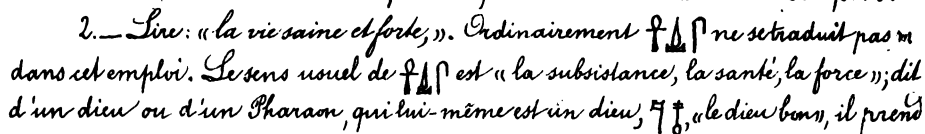 2. — Lire: «la vie saine et forte,». Ordinairement 𓋹𓍑𓋴 ne se traduit pas
dans cet emploi. Le sens usuel de 𓋹𓍑𓋴 est «la subsistance, la santé, la force»; dit
d'un dieu ou d'un Pharaon, qui lui-même est un dieu, 𓊹𓄤, «le dieu bon», il prend